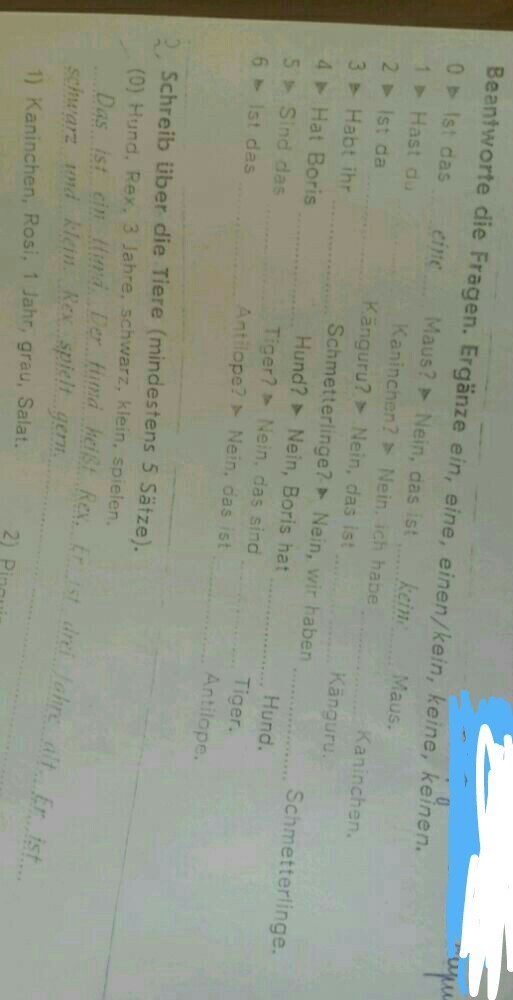 Beantworte die Fragen. Ergänze ein, eine, einen/kein, keine, keinen.
0 ➤ Ist das eine Maus? ➤ Nein, das ist keine Maus.
1 ➤ Hast du ........ Kaninchen? ➤ Nein, ich habe ........ Kaninchen.
2 ➤ Ist da ........ Känguru? ➤ Nein, das ist ........ Känguru.
3 ➤ Habt ihr ........ Schmetterlinge? ➤ Nein, wir haben ........ Schmetterlinge.
4 ➤ Hat Boris ........ Hund? ➤ Nein, Boris hat ........ Hund.
5 ➤ Sind das ........ Tiger? ➤ Nein, das sind ........ Tiger.
6 ➤ Ist das ........ Antilope? ➤ Nein, das ist ........ Antilope.
2. Schreib über die Tiere (mindestens 5 Sätze).
(0) Hund, Rex, 3 Jahre, schwarz, klein, spielen.
Das ist ein Hund. Der Hund heißt Rex. Er ist drei Jahre alt. Er ist
schwarz und klein. Rex spielt gern.
1) Kaninchen, Rosi, 1 Jahr, grau, Salat.
2)